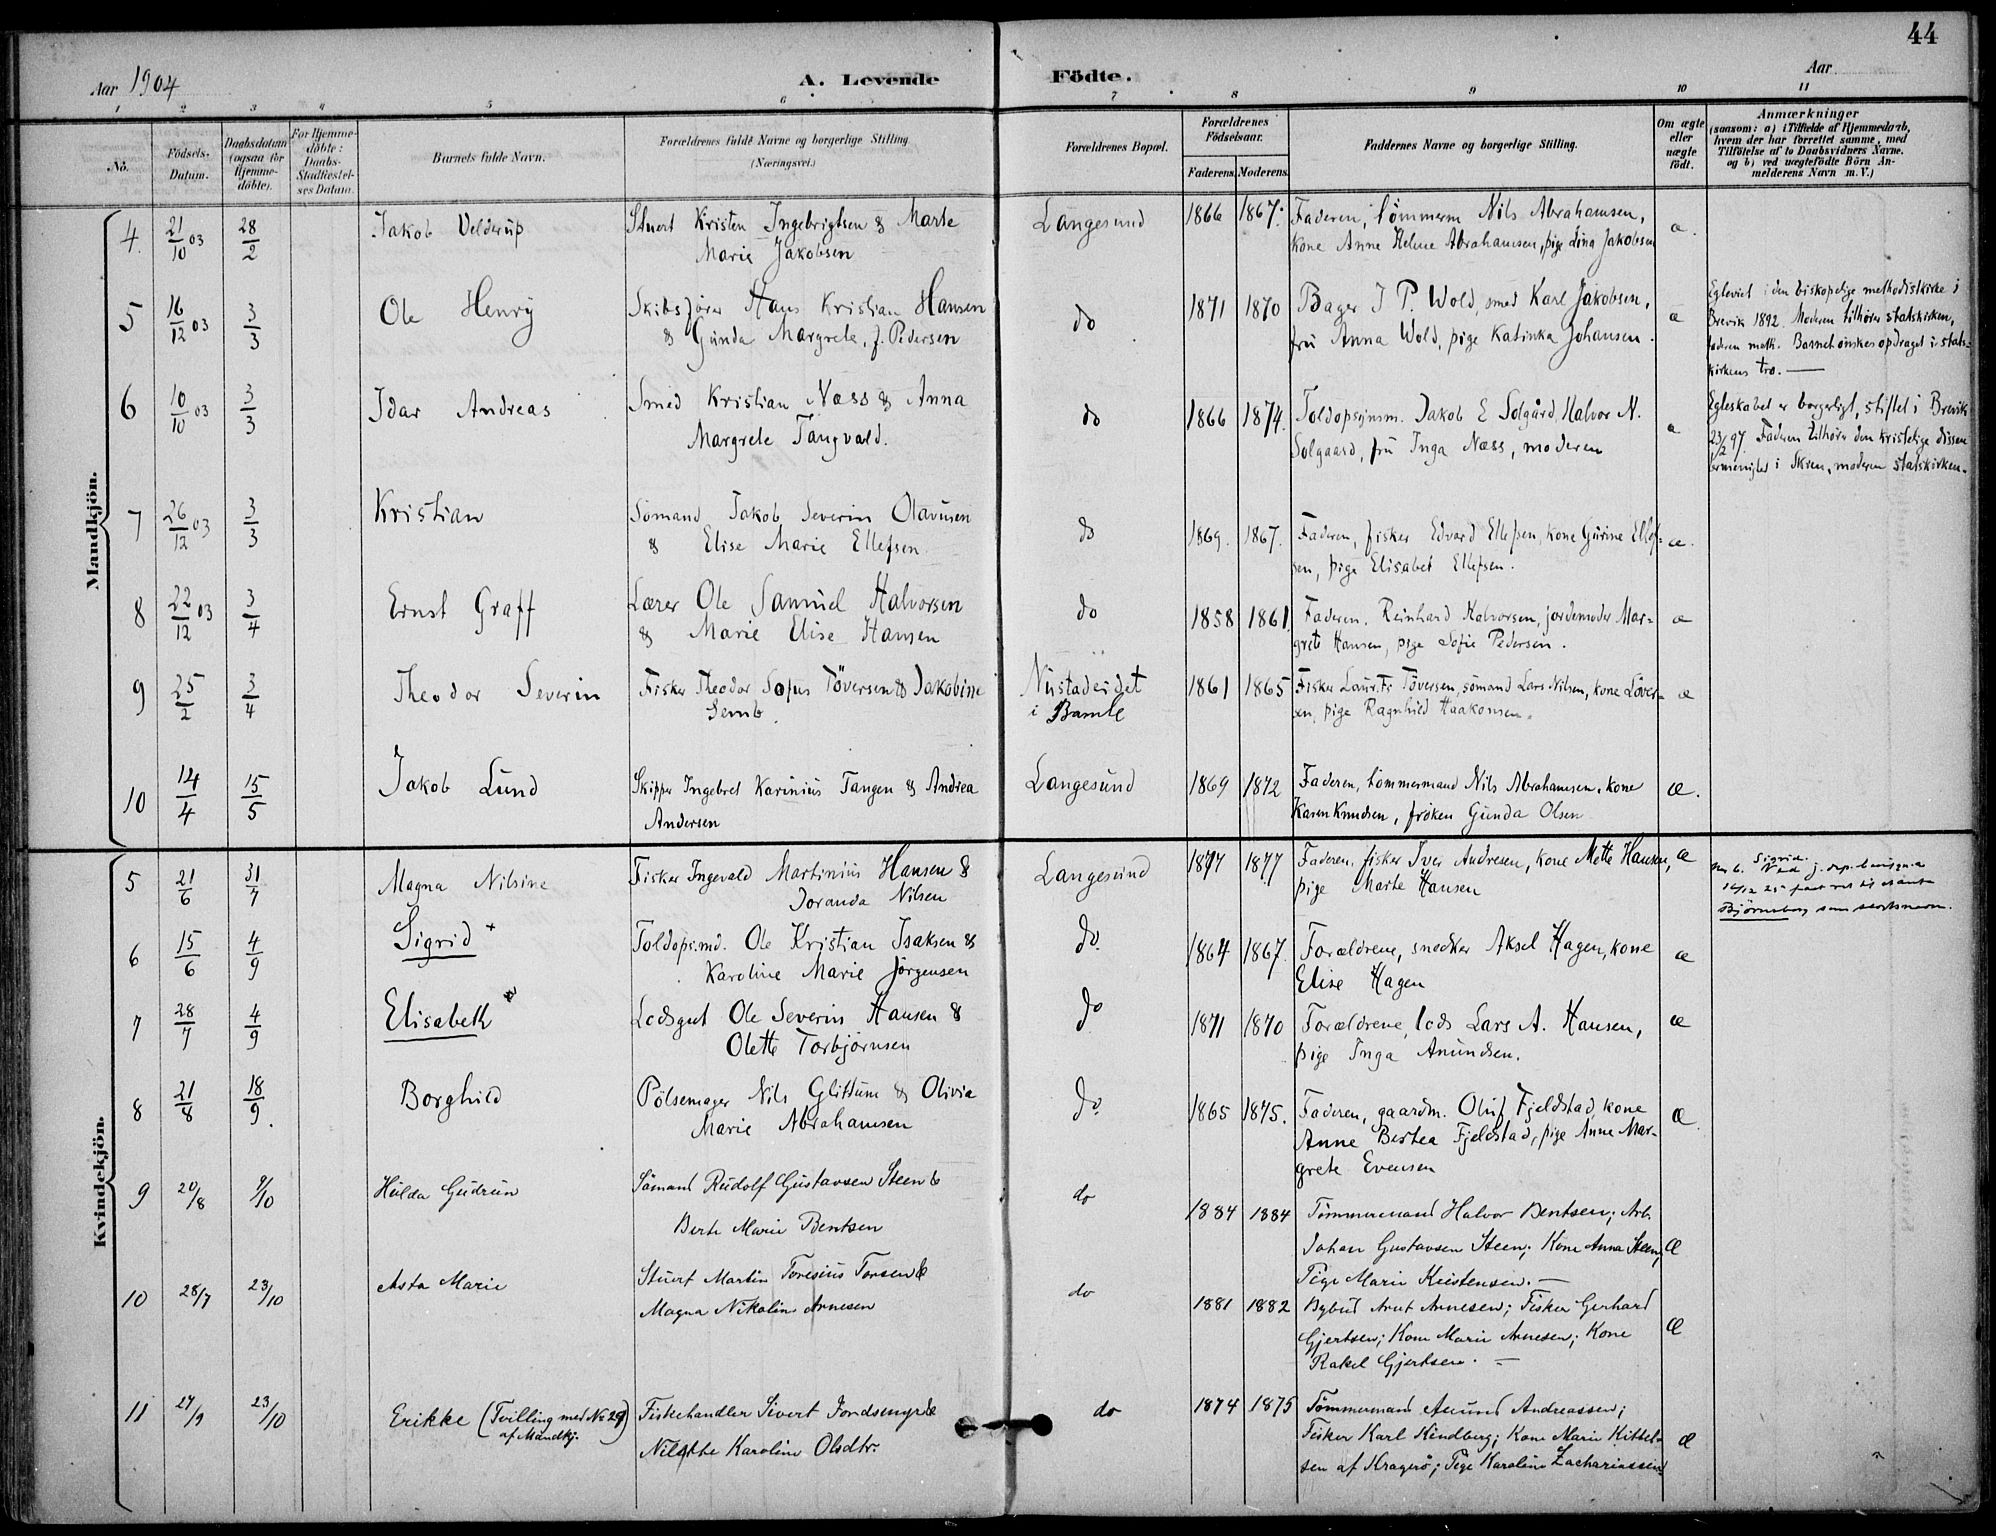 44
Aar 1904 A. Levende Födte. Aar
1 2 3 4 5 6 7 8 9 10 11
No.
Födsels-Datum.
Daabsdatum (ogsaa for Hjemme-döbte).
For Hjemme-döbte: Daabs-Stadfæstel-ses Datum.
Barnets fulde Navn.
Forældrenes fulde Navne og borgerlige Stilling (Næringsvei.)
Forældrenes Bopæl.
Forældrenes Födselsaar.
Faderens. Moderens.
Faddernes Navne og borgerlige Stilling.
Om ægte eller uægte födt.
Anmærkninger
(saasom: a) i Tilfælde af Hjemmedaab,
hvem der har forrettet samme, med
Tilföielse af to Daabsvidners Navne.
og b) ved uægtefödte Börn An-
melderens Navn m. V.)
Mandkjön.
4 21/10 03 28/2 Jakob Velderup Stuert Kristen Ingebrigtsen & Marte Langesund 1866 1867. Faderen, tömmerm Nils Abrahamsen, æ.
Marie Jakobsen kone Anne Helene Abrahamsen, pige Lina Jakobsen
5 16/12 03 3/3 Ole Henry Skibsfører Hans Kristian Hansen do 1871 1870 Bager J P. Wold, smed Karl Jakobsen, æ
& Gunda Margrete, f. Pedersen fru Anna Wold, pige Katinka Johansen.
Egteviet i den biskopelige methodistkirke i
Brevik 1892. Moderen tilhører statskirken,
faderen meth. Barnet ønskes opdraget i stats-
kirkens tro. —
6 10/10 03 3/3 Idar Andreas Smed Kristian Næss & Anna do 1866 1874. Toldopsynsm. Jakob E Solgård, Halvor N. æ
Margrete Tangvald. Solgaard, fru Inga Næss, moderen
Egteskabet er borgerligt, stiftet i Brevik
23/2 97. Faderen tilhører den kristelige dissen-
termenighed i Skien, moderen statskirken.
7 26/12 03 3/3 Kristian Sømand Jakob Severin Olavusen do 1869. 1867. Faderen, fisker Edvard Ellefsen, kone Gurine Ellef- æ.
& Elise Marie Ellefsen sen, pige Elisabet Ellefsen.
8 22/12 03 3/4 Ernst Graff Lærer Ole Samuel Halvorsen do 1858 1861 Faderen. Reinhard Halvorsen, jordemoder Mar- æ
& Marie Elise Hansen grete Hansen, pige Sofie Pedersen.
9 25/2 3/4 Theodor Severin Fisker Theodor Sofus Töversen & Jakobine Nustadeidet 1861 1865 Fisker Laurits Töversen, sömand Lars Nilsen, kone Töver- æ
Semb. i Bamle sen, pige Ragnhild Haakonsen.
10 14/4 15/5 Jakob Lund Skipper Ingebret Karinius Tangen & Andrea Langesund 1869 1872 Faderen, tömmermand Nils Abrahamsen, kone æ.
Andersen Karen Knudsen, frøken Gunda Olsen
Kvindekjön.
5 21/6 31/7 Magna Nilsine Fisker Ingevald Martinius Hansen & Langesund 1877 1877 Faderen, fisker Iver Andresen, kone Mette Hansen, æ
Joranda Nilsen pige Marte Hansen
Nr 6. Sigrid. Ved j. dep. bevilgn. a
16/12 25 faat ret til at anta
Bjørneberg som slektsnavn.
6 15/6 4/9 Sigrid + Toldops.md. Ole Kristian Isaksen & do. 1864 1867. Forældrene, snedker Aksel Hagen, kone æ
Karoline Marie Jörgensen Elise Hagen
7 28/7 4/9 Elisabeth Lodsgut Ole Severin Hansen & do 1871 1870 Forældrene, lods Lars A. Hansen, æ
Olette Torbjørnsen pige Inga Anundsen.
8 21/8 18/9. Borghild Pölsemager Nils Glittum & Olivia do. 1865 1875. Faderen, gaardm. Oluf Fjeldstad, kone æ
Marie Abrahamsen Anne Bertea Fjeldstad, pige Anne Mar-
grete Evensen
9 20/8 9/10 Hulda Gudrun Sømand Rudolf Gustavsen Steen & do 1884 1884 Tømmermand Halvor Bentsen; Arb.
Berte Marie Bentsen Johan Gustavsen Steen; Kone Anna Steen; Æ
Pige Marie Kristensen. —
10 28/7 23/10 Asta Marie Stuert Martin Toresius Torsen & do 1881 1882 Bybud Arnt Arnesen; Fisker Gerhard
Magna Nikoline Arnesen Gjertsen; Kone Marie Arnesen; Kone Æ
Rakel Gjertsen. —
11 27/9 23/10 Erikke (Tvilling med No 29 af Mandkj.) Fiskehandler Sivert Jordsmyr & do 1874 1875 Tømmermand Amund Andreassen;
Nilette Karoline Olsdtr. Fisker Karl Kindberg; Kone Marie Kittel- Æ
sen af Kragerö; Pige Karoline Zachariassen